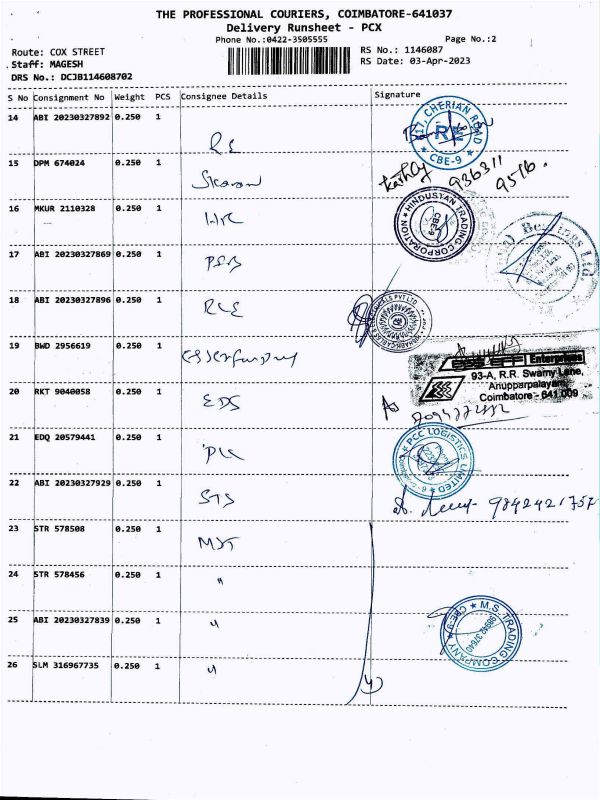 THE PROFESSIONAL COURIERS, COIMBATORE-641037
Delivery Runsheet - PCX
Phone No.:0422-3505555 Page No.:2
Route: COX STREET RS No.: 1146087
Staff: MAGESH RS Date: 03-Apr-2023
DRS No.: DCJB114608702
S No Consignment No Weight PCS Consignee Details Signature
14 ABI 20230327892 0.250 1 RE
117, CHERIAN ROAD RE ★ CBE-9 ★
15 DPM 674024 0.250 1
936311
9516.
16 MKUR 2110328 0.250 1
HINDUSTAN TRADING CORPORATION CBE-9
17 ABI 20230327869 0.250 1
Bearings Ltd.
18 ABI 20230327896 0.250 1 RCE
19 BWD 2956619 0.250 1
Enterprises
93-A, R.R. Swamy Lane,
Anupparpalayam,
Coimbatore - 641 009
20 RKT 9040058 0.250 1 EDS
21 EDQ 20579441 0.250 1 PCC
PCC LOGISTICS LIMITED
22 ABI 20230327929 0.250 1 STS
9842421757
23 STR 578508 0.250 1
24 STR 578456 0.250 1 "
25 ABI 20230327839 0.250 1 "
M.S. TRADING COMPANY ★ CBE-9 ★
98942 37640
26 SLM 316967735 0.250 1 "